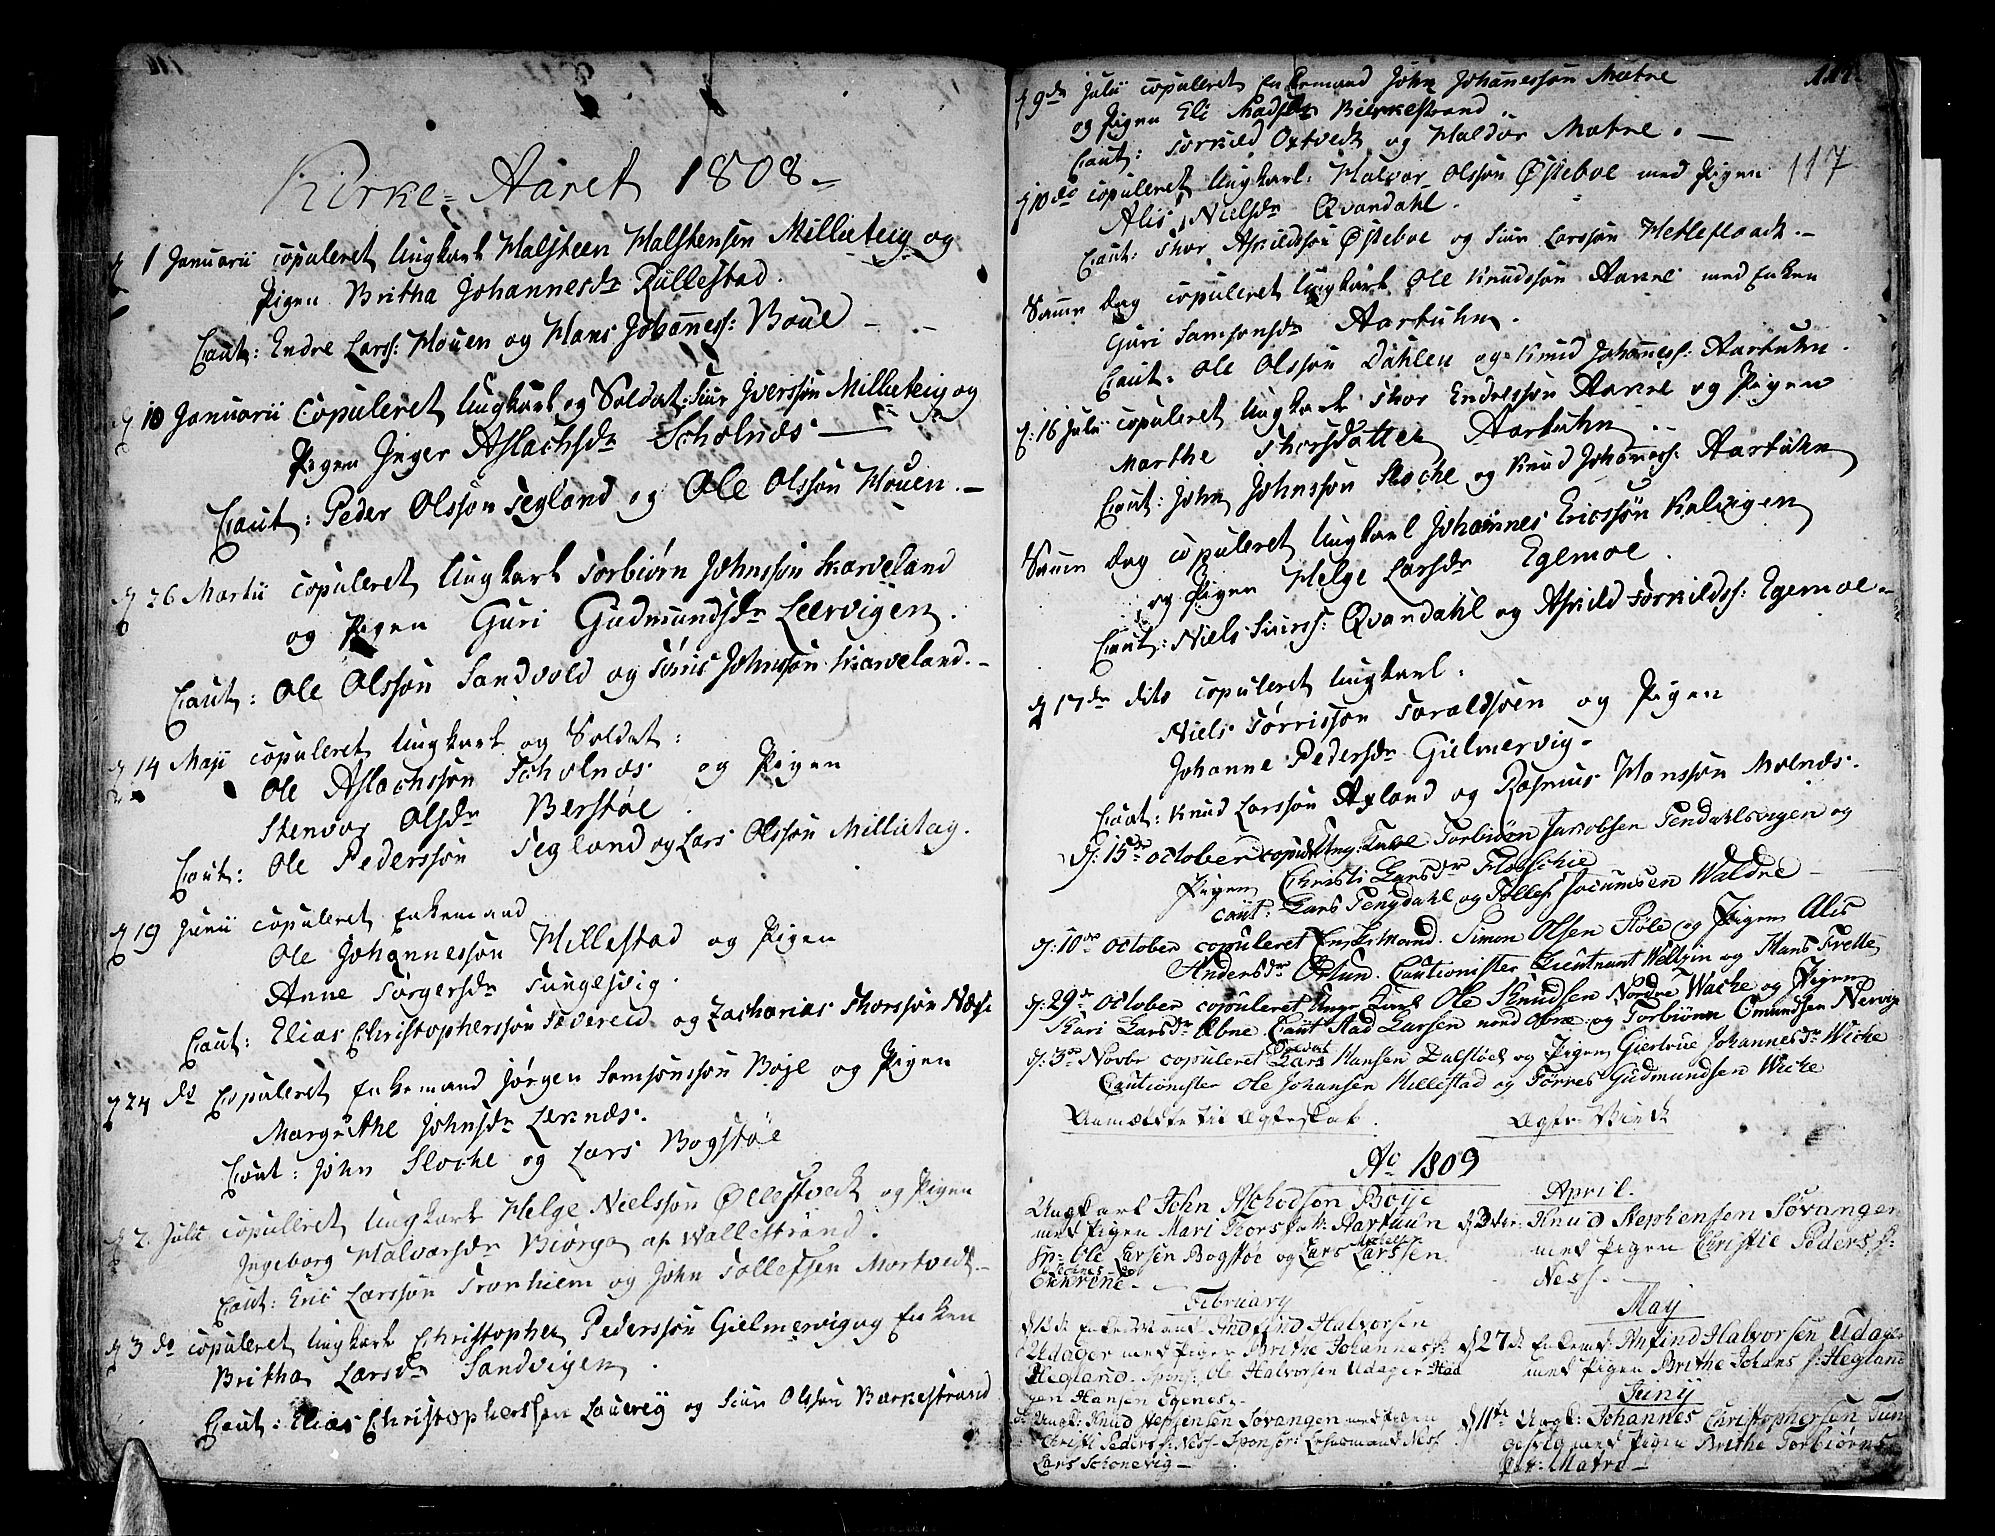 Kirke-Aaret 1808
d. 1 Januarii copuleret Ungkarl Halsteen Halstensen Millieteig og
Pigen Britha Johannesdr Rullestad.
Caut: Endre Larss: Houen og Hans Johaness: Boue
d. 10 Januarii Copuleret Ungkarl og Soldat: Siur Iverssøn Millieteig og
Pigen Inger Aslachsdr Scholnæs
Caut: Peder Olssøn Tegland og Ole Olssøn Houen.
d. 26 Martii copuleret Ungkarl Torbiørn Johnssøn Karveland
og Pigen Guri Gudmundsdr Leervigen.
Caut: Ole Olssøn Sandvold og Tørris Johnssøn Karveland.
d. 14 Maji copuleret Ungkarl og Soldat:
Ole Aslachssøn Scholnæs og Pigen
Stenvor Olsdr Berstøe.
Caut: Ole Pederssøn Tegland og Lars Olssøn Millieteig.
d. 19 Junii copuleret Enkemand
Ole Johannessøn Hillestad og Pigen
Anne Torgersdr Tungesvig.
Caut: Elias Christopherssøn Tevereid og Zacharias Thorssøn Næse
d. 24 do Copuleret Enkemand Jørgen Samsonssøn Boje og Pigen
Margrethe Johnsdr Leknæs.
Caut: John Floche og Lars Bogstøe
d. 2 Julii copuleret Ungkarl Helge Nielssøn Øllestvedt og Pigen
Ingeborg Halvorsdr Biørgo af Wallestrand.
Caut: Eric Larssøn Tronhiem og John Tollefsen Mortvedt
d. 3 do copuleret Ungkarl Christopher Pederssøn Gielmervig og Enken
Britha Larsdr Sandvigen.
Caut: Elias Christopherssøn Louvig og Siur Olssøn Barkestrand
d. 9de Julii copuleret Enkemand John Johanessøn Matre
og Pigen Eli Madsdr Bierkestrand.
Caut: Torkild Oxtvedt og Haldor Matre.
117
d. 10do copuleret Ungkarl: Halvor Olssøn Østeboe med Pigen
Alis Nielsdr Qvandahl.
Caut: Thor Askildssøn Østeboe og Siur Larssøn Hetlefloedt.
Samme Dag copuleret Ungkarl Ole Knudssøn Aarre med Enken
Guri Samsonsdr Aartuhn.
Caut: Ole Olssøn Dahlen og Knud Johaness: Aartuhn.
d. 16 Julii copuleret Ungkarl Thor Endressøn Aarre og Pigen
Marthe Thorsdatter Aartuhn.
Caut: John Johnssøn Floche og Knud Johaness: Aartuhn
Samme Dag copuleret Ungkarl Johannes Ericssøn Kalvigen
og Pigen Helge Larsdr Egemoe.
Caut: Niels Siurss: Qvandahl og Askild Torkildss: Egemoe.
d. 17de dito copuleret Ungkarl:
Niels Tørrissøn Taraldsøen og Pigen
Johanne Pedersdr Gielmervig.
Caut: Knud Larssøn Axland og Rasmus Hanssøn Molnæs.
d: 15de October copul: Ung: Karl Torbiørn Jacobsen Tendahlsvigen og
Pigen Christi Larsdr Floschie
Caut: Lars Tengdahl og Tollef Jocumsen Waldre
d: 10de October copuleret Enkemand Simon Olsen Røle og Pigen Alis
Andersdr Østun. Cautionister Lieutnant Weltzin og Hans Frette
d: 29de October copuleret Unge Karl Ole Knudsen Nordre Wache og Pigen
Kari Larsdr Ebne. Caut Aad Larsen nord Ebne og Torbiønn Omundsen Nervig
d: 3de Novbr copuleret Soldat Lars Hansen Dalstøel og Pigen Giertrue Johannesdr Wiche
Cautionister Ole Johansen Hillestad og Tørres Gudmundsen Wiche
Anmældte til Ægteskab. Ægte-Viede
Ao 1809
Ungkarl John Boije
med Pigen Mari Thorsdatr: Aartuun
Sp: Ole Larsen Bogstøe og Lars Larssen
Echrene.
February
Enkemand Andfind Halvorsen
Udager med Pigen Brithe Johannesdr
Hegland. Spons: Ole Halvorsen Udager
Hansen Egenes.
Ungk: Knud Stephensen Sørvangen med Pigen
Christi Pedersdr: Ness Sponsor: Lehnsmand Ness
Lars Schonevig
April.
Knud Stephensen Sørvangen
med Pigen Christie Pedersdr:
Ness.
May
d. 27de Enkemd: Anfind Halvorsen Udager
med Pigen Brithe Johansdr: Hegland
Junij
d. 11te Ungk: Johannes Christophersen Tun
gesvig med Pigen Brithe Torbiørns
datr: Matre